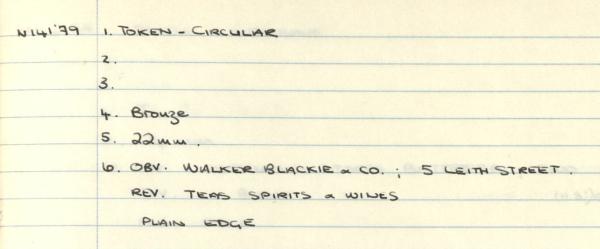 N141'79 1. TOKEN - CIRCULAR
2.
3.
4. Bronze
5. 22mm.
6. OBV. WALKER BLACKIE & CO. ; 5 LEITH STREET.
REV. TEAS SPIRITS & WINES
PLAIN EDGE